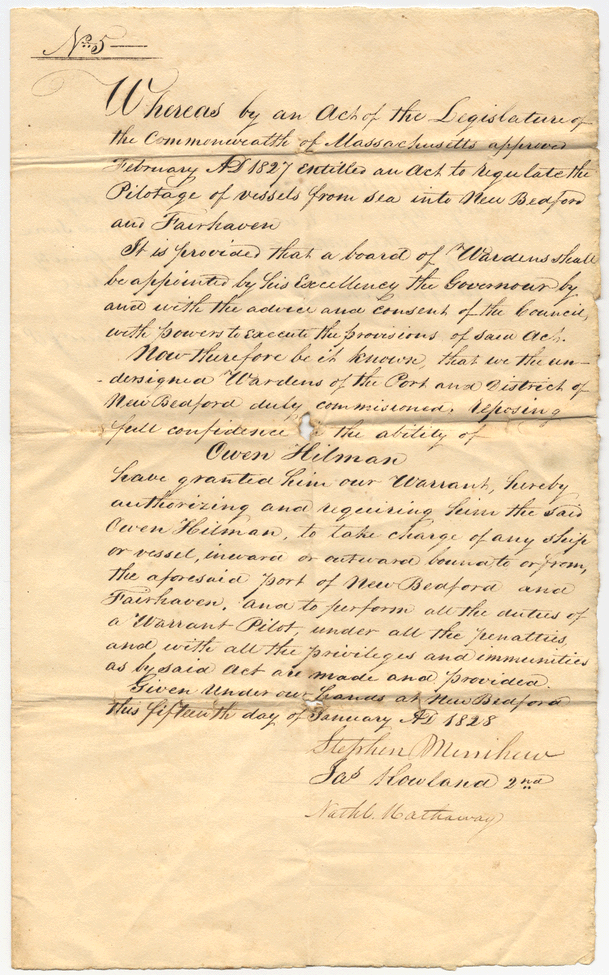 No. 5
Whereas by an Act of the Legislature of
the Commonwealth of Massachusetts approved
February AD 1827 entitled an Act to regulate the
Pilotage of vessels from sea into New Bedford
and Fairhaven
It is provided that a board of Wardens shall
be appointed by his Excellency the Governour by
and with the advice and consent of the Council,
with powers to execute the provisions of said Act.
Now therefore be it known, that we the un-
-dersigned Wardens of the Port and District of
New Bedford duly commissioned, reposing
full confidence the ability of
Owen Hilman
have granted him our Warrant, hereby
authorizing and requiring him the said
Owen Hilman, to take charge of any ship
or vessel, inward or outward bound to or from,
the aforesaid port of New Bedford and
Fairhaven, and to perform all the duties of
a Warrant Pilot, under all the penalties,
and with all the privileges and immunities
as by said Act are made and provided.
Given Under our hands at New Bedford
this fifteenth day of January AD 1828
Stephen Merrihew
Jas Howland 2nd
Nathl. Hathaway